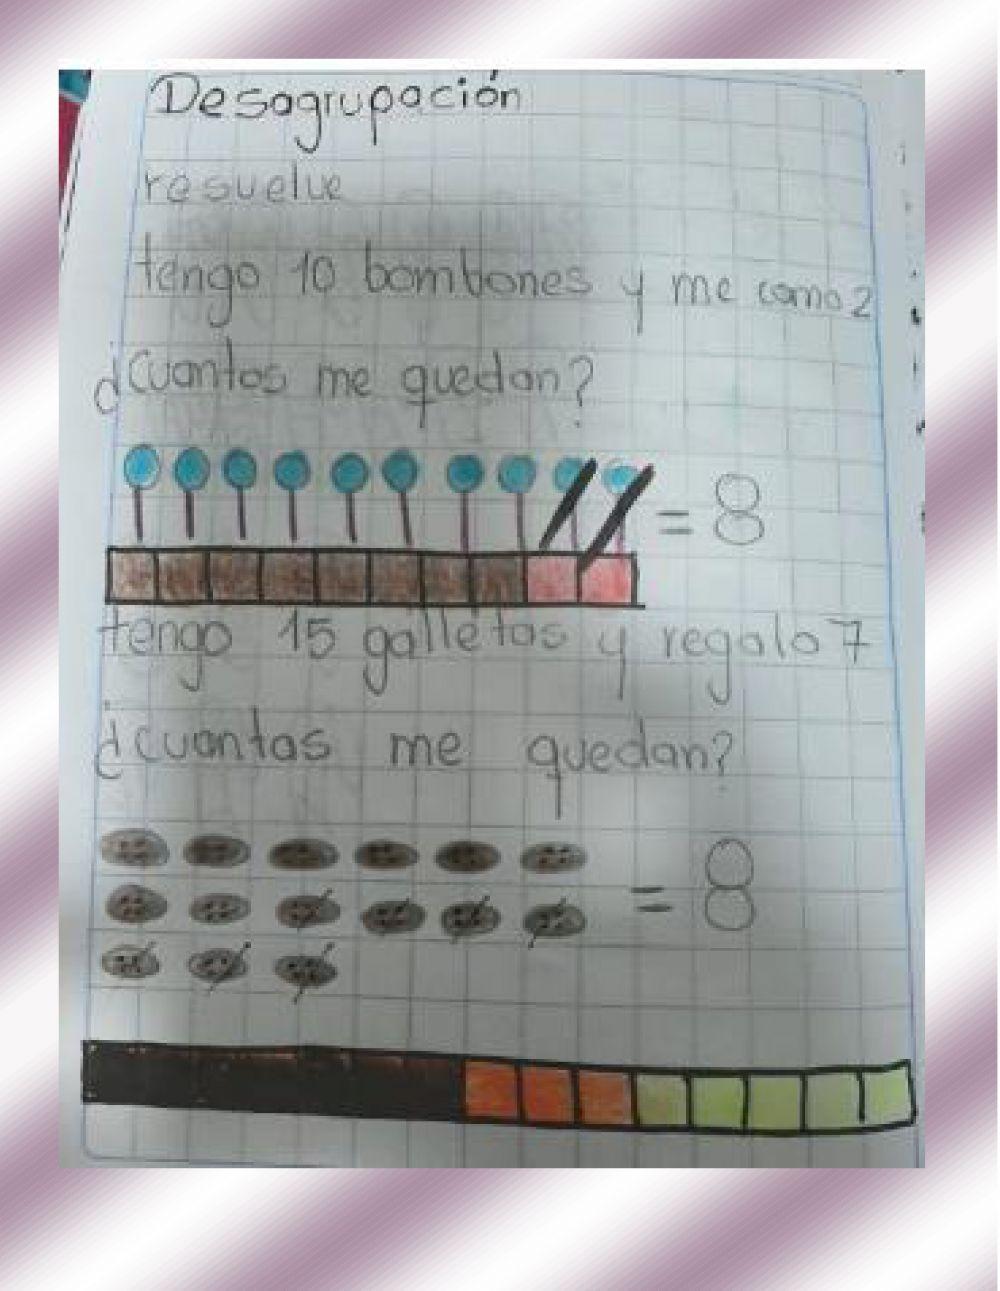 Desagrupación
resuelve
tengo 10 bombones y me como 2
¿Cuantos me quedan?
= 8
tengo 15 galletas y regalo 7
¿cuantas me quedan?
= 8